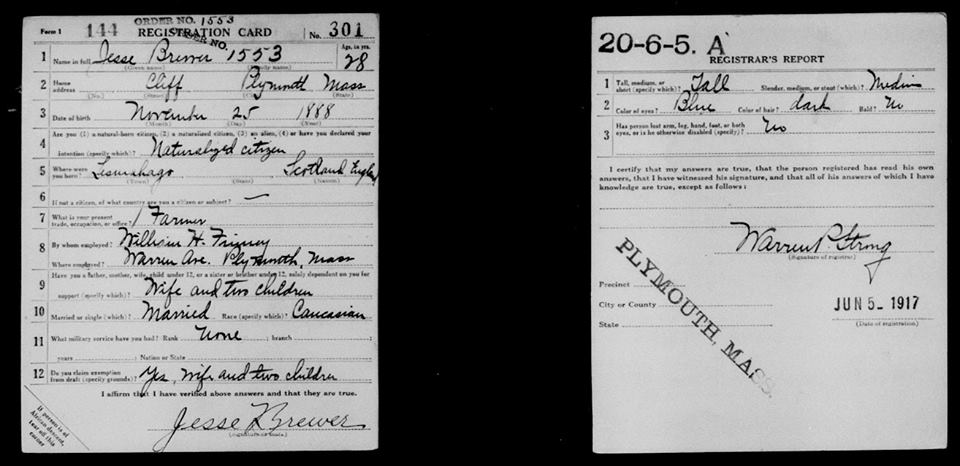 ORDER NO. 1553
Form 1 144 REGISTRATION CARD No. 301
ORDER NO.
1 Name in full Jesse Brewer 1553 Age, in yrs. 28
(Given name) (Family name)
2 Home address Cliff Plymouth Mass
(No.) (Street) (State)
3 Date of birth November 25 1888
(Month) (Day) (Year)
4 Are you (1) a natural-born citizen, (2) a naturalized citizen, (3) an alien, (4) or have you declared your
intention (specify which)? Naturalized citizen
5 Where were you born? Lesmahago Scotland England
(Town) (State) (Nation)
6 If not a citizen, of what country are you a citizen or subject? —
7 What is your present trade, occupation, or office? Farmer
8 By whom employed? William H. Finney
Where employed? Warren Ave. Plymouth, Mass
9 Have you a father, mother, wife, child under 12, or a sister or brother under 12, solely dependent on you for
support (specify which)? Wife and two children
10 Married or single (which)? Married Race (specify which)? Caucasian
11 What military service have you had? Rank None ; branch
years ; Nation or State
12 Do you claim exemption from draft (specify grounds)? Yes, Wife and two children
I affirm that I have verified above answers and that they are true.
Jesse Brewer
(Signature or mark)
If person is of African descent, tear off this corner
20-6-5. A
REGISTRAR'S REPORT
1 Tall, medium, or short (specify which)? Tall Slender, medium, or stout (which)? Medium
2 Color of eyes? Blue Color of hair? dark Bald? No
3 Has person lost arm, leg, hand, foot, or both eyes, or is he otherwise disabled (specify)? No
I certify that my answers are true, that the person registered has read his own
answers, that I have witnessed his signature, and that all of his answers of which I have
knowledge are true, except as follows:
Warren P. Strong
(Signature of registrar)
Precinct
City or County
State
PLYMOUTH, MASS.
JUN 5 - 1917
(Date of registration)